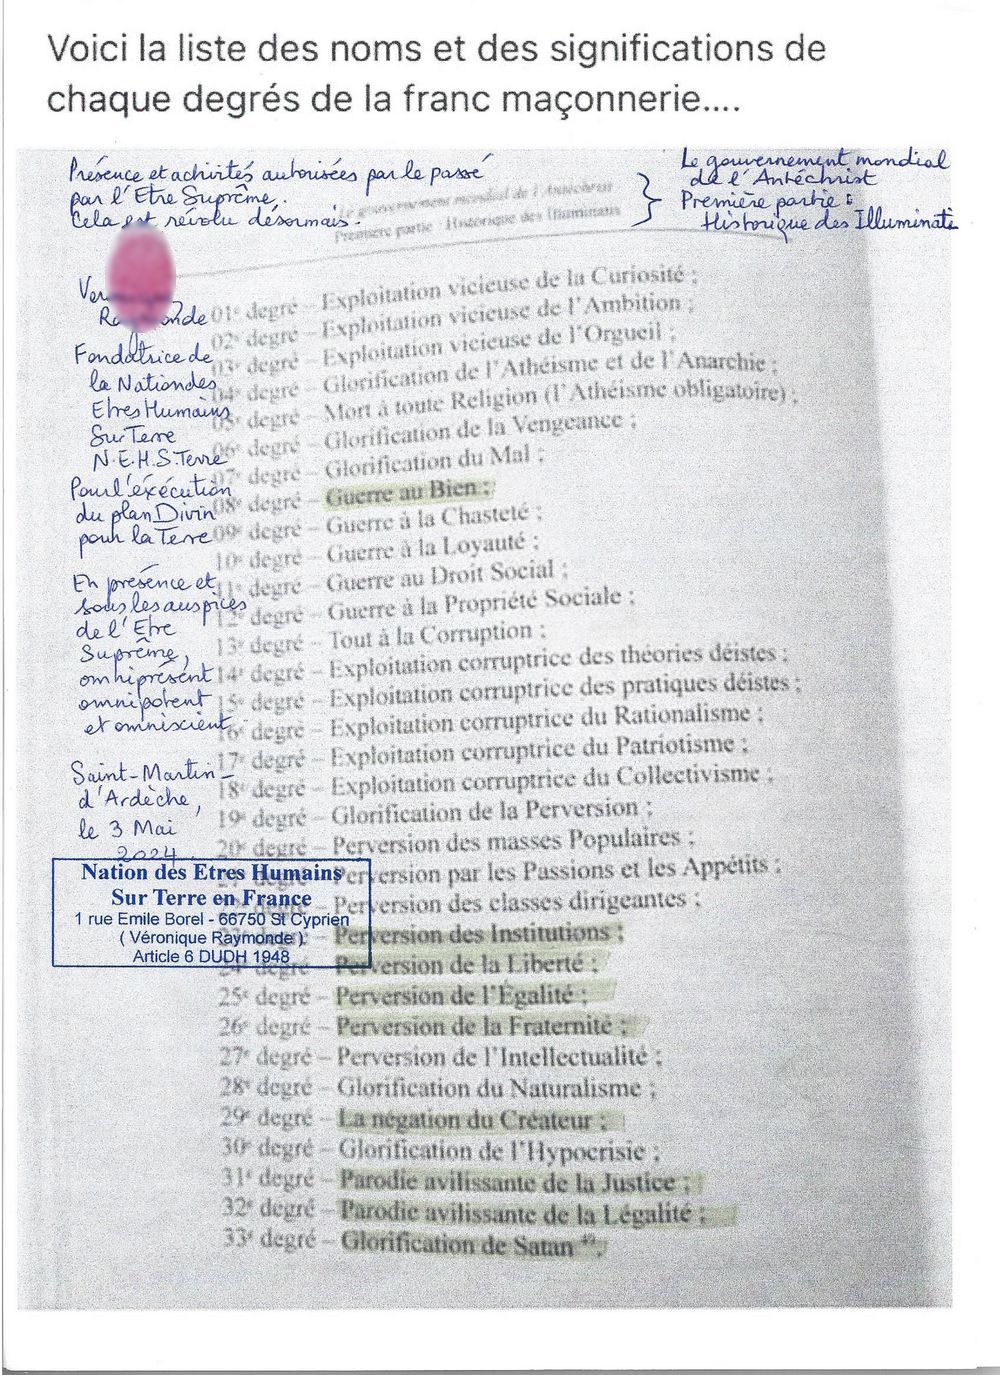 Voici la liste des noms et des significations de
chaque degrés de la franc maçonnerie....
Présence et activités autorisées par le passé
par l'Etre Suprême.
Cela est révolu désormais.
Le gouvernement mondial
de l'Antéchrist
Première partie :
Historique des Illuminati
Le gouvernement mondial de l'Antéchrist
Première partie : Historique des Illuminati
Fondatrice de
la Nation des
Etres Humains
Sur Terre
N.E.H.S.Terre
Pour l'éxécution
du plan Divin
pour la Terre
En présence et
sous les auspices
de l'Etre
Suprême,
omniprésent
omnipotent
et omniscient
Saint-Martin-
d'Ardèche,
le 3 Mai
2024
Nation des Etres Humains
Sur Terre en France
1 rue Emile Borel - 66750 St Cyprien
( Véronique Raymonde )
Article 6 DUDH 1948
01e degré – Exploitation vicieuse de la Curiosité ;
02e degré – Exploitation vicieuse de l'Ambition ;
03e degré – Exploitation vicieuse de l'Orgueil ;
04e degré – Glorification de l'Athéisme et de l'Anarchie ;
05e degré – Mort à toute Religion (l'Athéisme obligatoire) ;
06e degré – Glorification de la Vengeance ;
07e degré – Glorification du Mal ;
08e degré – Guerre au Bien ;
09e degré – Guerre à la Chasteté ;
10e degré – Guerre à la Loyauté ;
11e degré – Guerre au Droit Social ;
12e degré – Guerre à la Propriété Sociale ;
13e degré – Tout à la Corruption ;
14e degré – Exploitation corruptrice des théories déistes ;
15e degré – Exploitation corruptrice des pratiques déistes ;
16e degré – Exploitation corruptrice du Rationalisme ;
17e degré – Exploitation corruptrice du Patriotisme ;
18e degré – Exploitation corruptrice du Collectivisme ;
19e degré – Glorification de la Perversion ;
20e degré – Perversion des masses Populaires ;
Perversion par les Passions et les Appétits ;
Perversion des classes dirigeantes ;
23e degré – Perversion des Institutions ;
24e degré – Perversion de la Liberté ;
25e degré – Perversion de l'Égalité ;
26e degré – Perversion de la Fraternité ;
27e degré – Perversion de l'Intellectualité ;
28e degré – Glorification du Naturalisme ;
29e degré – La négation du Créateur ;
30e degré – Glorification de l'Hypocrisie ;
31e degré – Parodie avilissante de la Justice ;
32e degré – Parodie avilissante de la Légalité ;
33e degré – Glorification de Satan